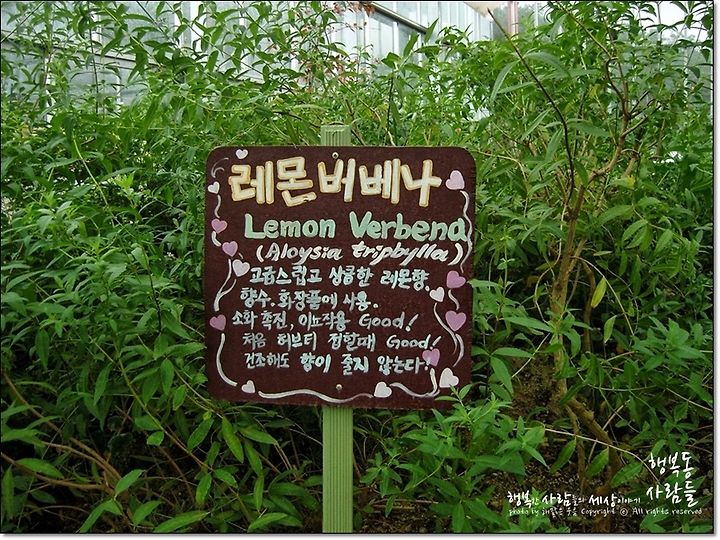 레몬버베나
Lemon Verbena
(Aloysia triphylla)
고급스럽고 상큼한 레몬향.
향수. 화장품에 사용.
소화촉진, 이뇨작용 Good!
처음 허브티 접할때 Good!
건조해도 향이 줄지 않는다.
행복동
사람들
행복한 사람들의 세상이야기
photo by 해맑은 Copyright ⓒ All rights reserved